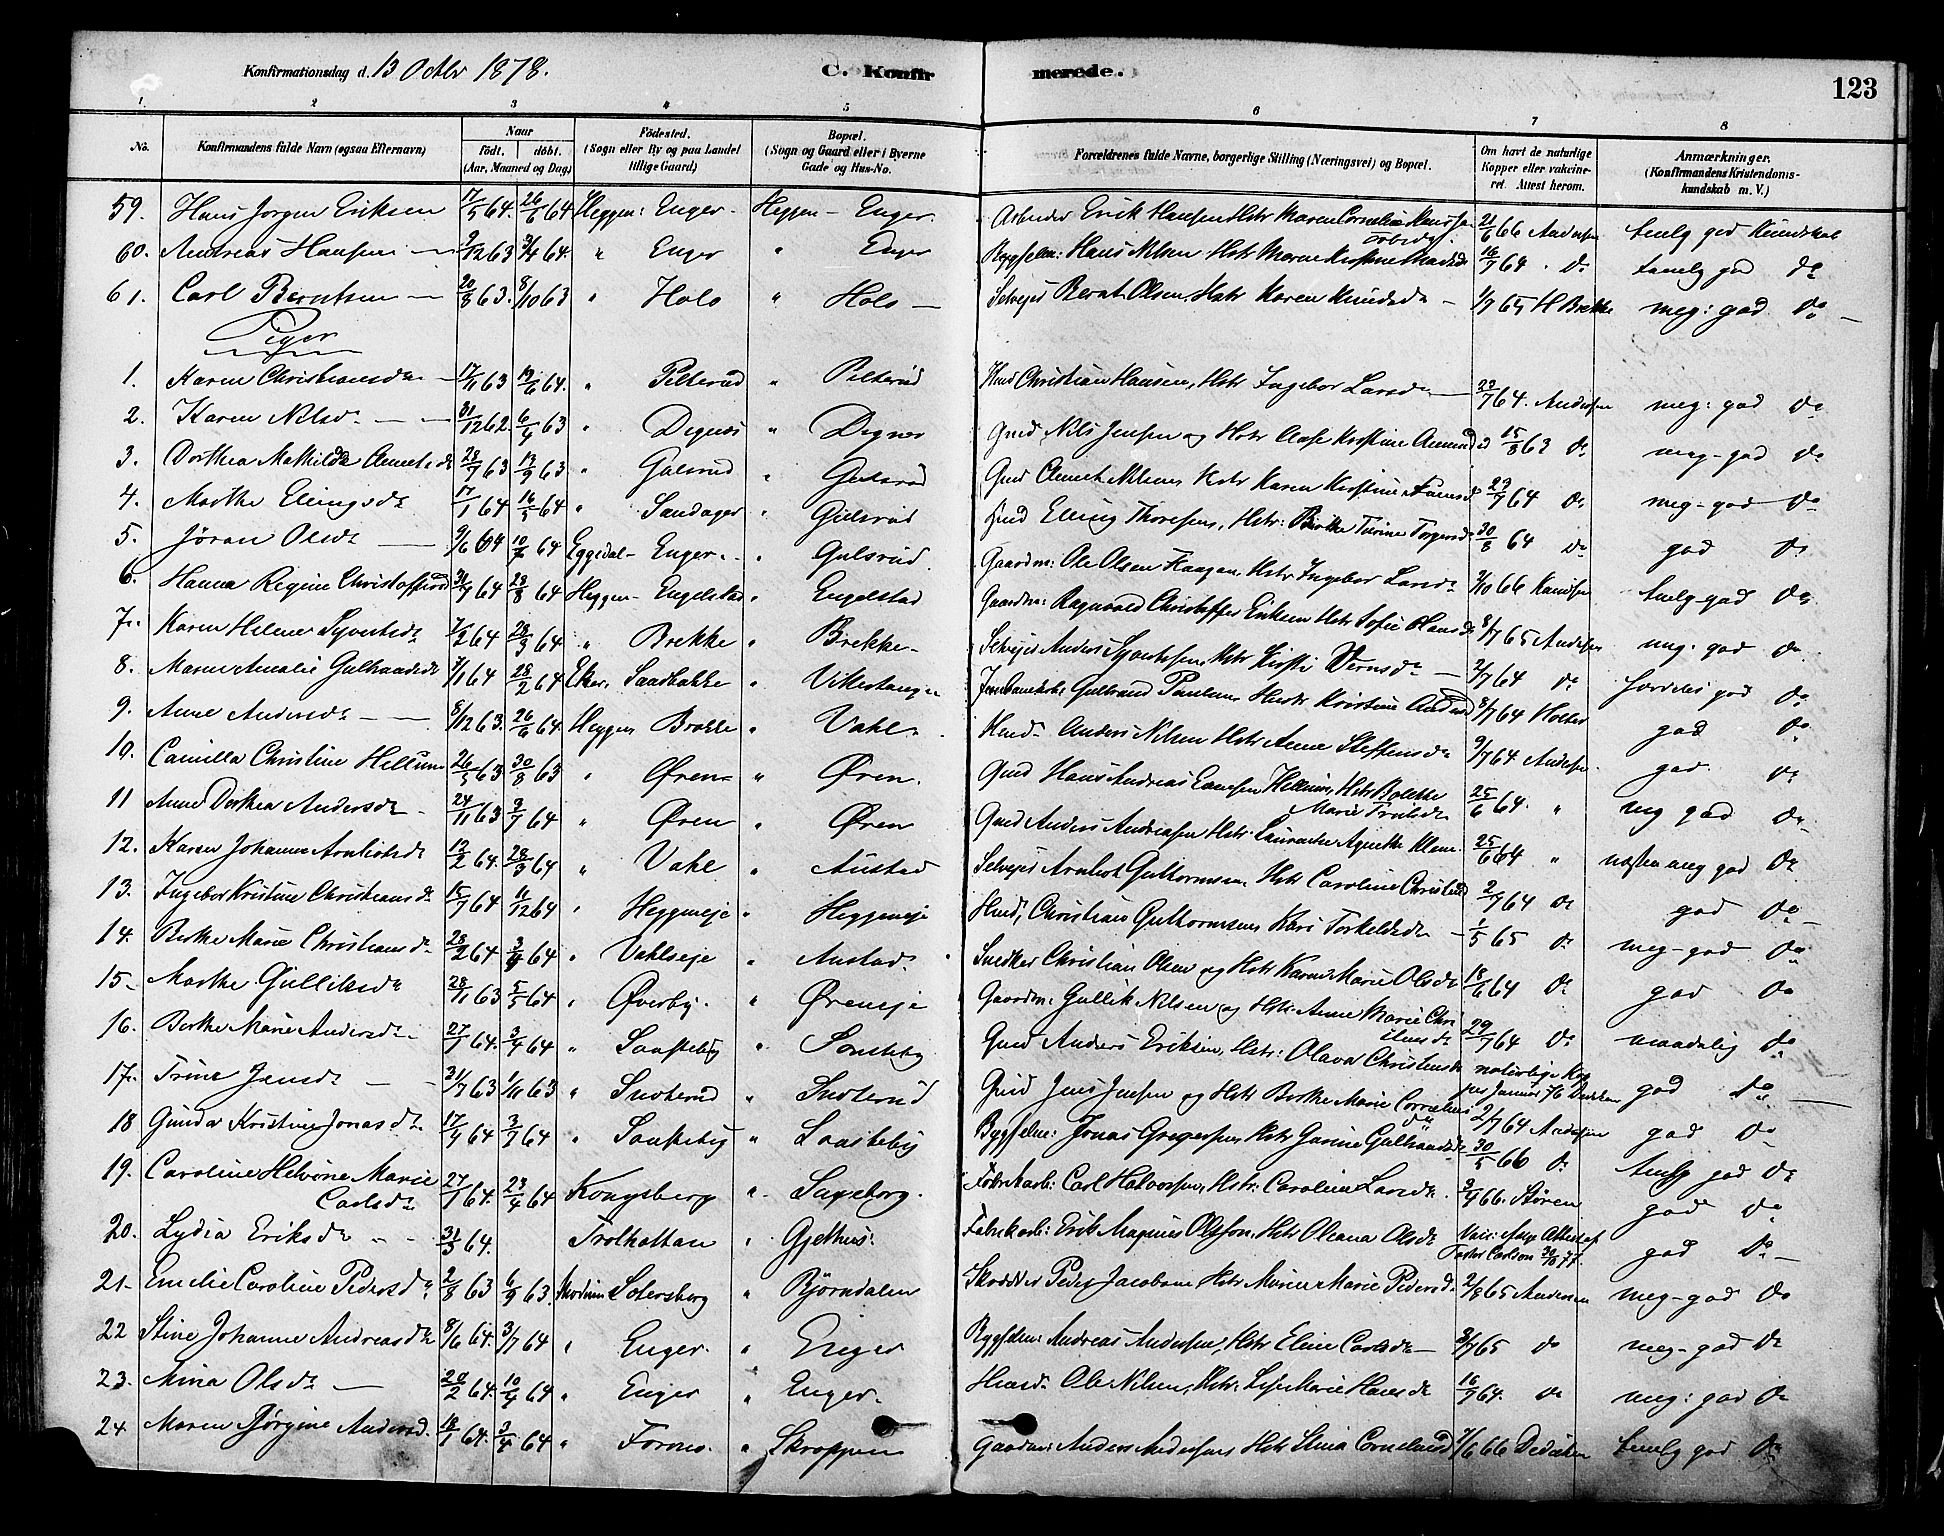 Konfirmationsdag d. 13 Octbr 1878. C. Konfirmerede. 123
1. 2 3 4 5 6 7 8
No. Konfirmandens fulde Navn (ogsaa Efternavn) Naar födt. döbt. (Aar, Maaned og Dag) Födested. (Sogn eller By og paa Landet tillige Gaard) Bopæl. (Sogn og Gaard eller i Byerne Gade og Hus-No. Forældrenes fulde Navne, borgerlige Stilling (Næringsvei) og Bopæl. Om havt de naturlige Kopper eller vakcineret. Attest herom. Anmærkninger. (Konfirmandens Kristendomskundskab m. V.)
59. Hans Jørgen Eriksen 17/5 64. 26/6 64 Heggen: Enger. Heggen - Enger. Arbeider Erik Hansen Hstr Maren Cornelia 21/6 66 Andersen temlg god Kundskab
60. Andreas Hansen 9/12 63 3/4 64. " Enger " Enger Bygselm: Hans Nilsen Hstr Maren Kristine 16/7 64 do temlg god do
61. Carl Berntsen 20/8 63. 8/10 63 " Hols " Hols Selvejer Bernt Olsen Hstr Karen Knudsdr 1/7 65 H Brekke meg: god do
Piger
1. Karen Christiansdr 17/11 63 19/6 64. " Pilterud " Pilterud Hmd Christian Hansen, Hstr Ingebor Larsdr 23/7 64. Andersen meg: god do
2. Karen Nilsdr 31/12 62. 6/4 63 " Degnes " Degnes Gmd Nils Jensen og Hstr Aase Kristine 15/8 63 do meg-god do
3. Dorthea Mathilde 28/7 63 13/9 63 " Gulsrud " Gulsrud Gmd Nilsen Hstr Karen Kristine 23/7 64 do meg-god do
4. Marthe Ellingsdr 17/1 64 16/5 64 " Sandager " Gulsrud Hmd Elling Thoresen, Hstr: Berthe Turine Torgersd 30/8 64 do god do
5. Jöran Olsdr 9/6 64 10/7 64 Eggedal - Enger. " Gulsrud. Gaardm: Ole Olsen Haagen, Hstr Ingebor Larsdr 9/10 66 Knudsen temlg-god do
6. Hanna Regine Christoffersd 64 28/8 64 Heggen - Engelstad " Engelstad Gaardm: Ragnvald Christoffer Eriksen Hstr Sofie Hansdr 8/7 65 Andersen meg: god do
7. Karen Helene Syversdr 7/2 64 28/3 64. " Brekke " Brekke Selvejer Anders Syvertsen Hstr Kirsti 2/7 64 do særdeles god do
8. Maren Amalie Gulbrandsdr 7/1 64 28/2 64 Eker. Saasbakke " Vikestangen Gulbrand Paulsen Hustr Kristine Andersd 8/7 64 Holter god do
9. Anne Andersdr 8/12 63. 26/6 64 Heggen Brekke " Vahl Hmd Anders Nilsen Hstr Anne Steffensdr 9/7 64 Andersen god do
10. Camilla Christine Hellum 26/5 63 30/8 63 " Øren " Øren. Gmd Hans Andreas Hellum, Hstr Bolette Marie 25/6 64. " meg god do
11 Anne Dorthea Andersdr 24/11 63 3/7 64 " Øren " Øren Gmd Anders Andreasen Hstr Agnethe 25/6 64 " næsten meg god do
12. Karen Johanne 12/2 64. 28/3 64 " Vahl " Austad Selvejer Guttormsen Hstr Caroline 2/7 64 do god do
13. Ingebor Kristine Christiansdr 15/7 64 11/12 64 " Heggeneje " Heggeneje Hmd, Christian Guttormsen Kari Torkeldsdr 1/5 65 do meg-god do
14. Berthe Marie Christiansdr 28/2 64 3/4 64 " Vahlseje " Austad Snedker Christian Olsen og Hstr Karen Marie Olsdr 18/6 64 do god do
15. Marthe Gulliksdr 28/11 63 5/5 64 " Øverby. " Øreneje Gaardm: Gullik Nilsen og Hstr: Anne Marie 29/7 64 do maadelig do
16. Berthe Marie Andersdr 27/1 64. 3/4 64 " Saasteby " Saasteby Gmd Anders Eriksen, Hstr: Olava naturlige god do
17. Trine Jensdr 31/7 63 1/11 63 " Snoterud " Snoterud Gmd Jens Jensen og Hstr Berthe Marie 2/7 64 Andersen god do
18 Gunda Kristine Jonasdr. 17/4 64 3/7 64 " Saasteby " Saasteby Bygselm: Jonas Gregersen, Hstr Gurine Gulbrandsdr 30/5 66 do temlg god do
19. Caroline Helvine Marie Carlsdr. 27/1 64. 23/4 64 Kongsberg " Sageborg. Fabrikarb: Carl Halvorsen, Hstr: Caroline Larsdr. 3/9 66. Støren god do
20. Lydia Eriksdr 31/3 64. Trolhattan " Gjethus. Fabrikarb: Erik Magnus Olsson, Hstr Oleana Olsdr god do
21. Emelie Caroline Pedersdr 2/8 63 6/9 63. Modum Sotersberg " Björndalen Skrædder Peder Jacobsen Hstr Maren Marie Pedersdr 2/8 65 Andersen meg-god do
22 Stine Johanne Andreasdr 8/6 64. 3/7 64 " Enger " Enger Bygselm: Andreas Andersen, Hstr Eline Carlsdr 3/7 65 do meg-god do
23. Mina Olsdr 20/2 64. 10/4 64 " Enger " Enger. Husmd Ole Nilsen, Hstr: Hansdr 16/7 64. do meg: god do
24. Maren Jörgine Andersd. 18/1 64. 3/4 64 " Fornes. " Skroppen Gaardm: Anders Andersen Hstr Stina 7/6 66 temlg god do